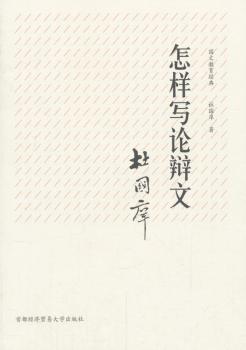 国文教育经典 杜国庠 著
怎样写论辩文
杜國庠
首都经济贸易大学出版社